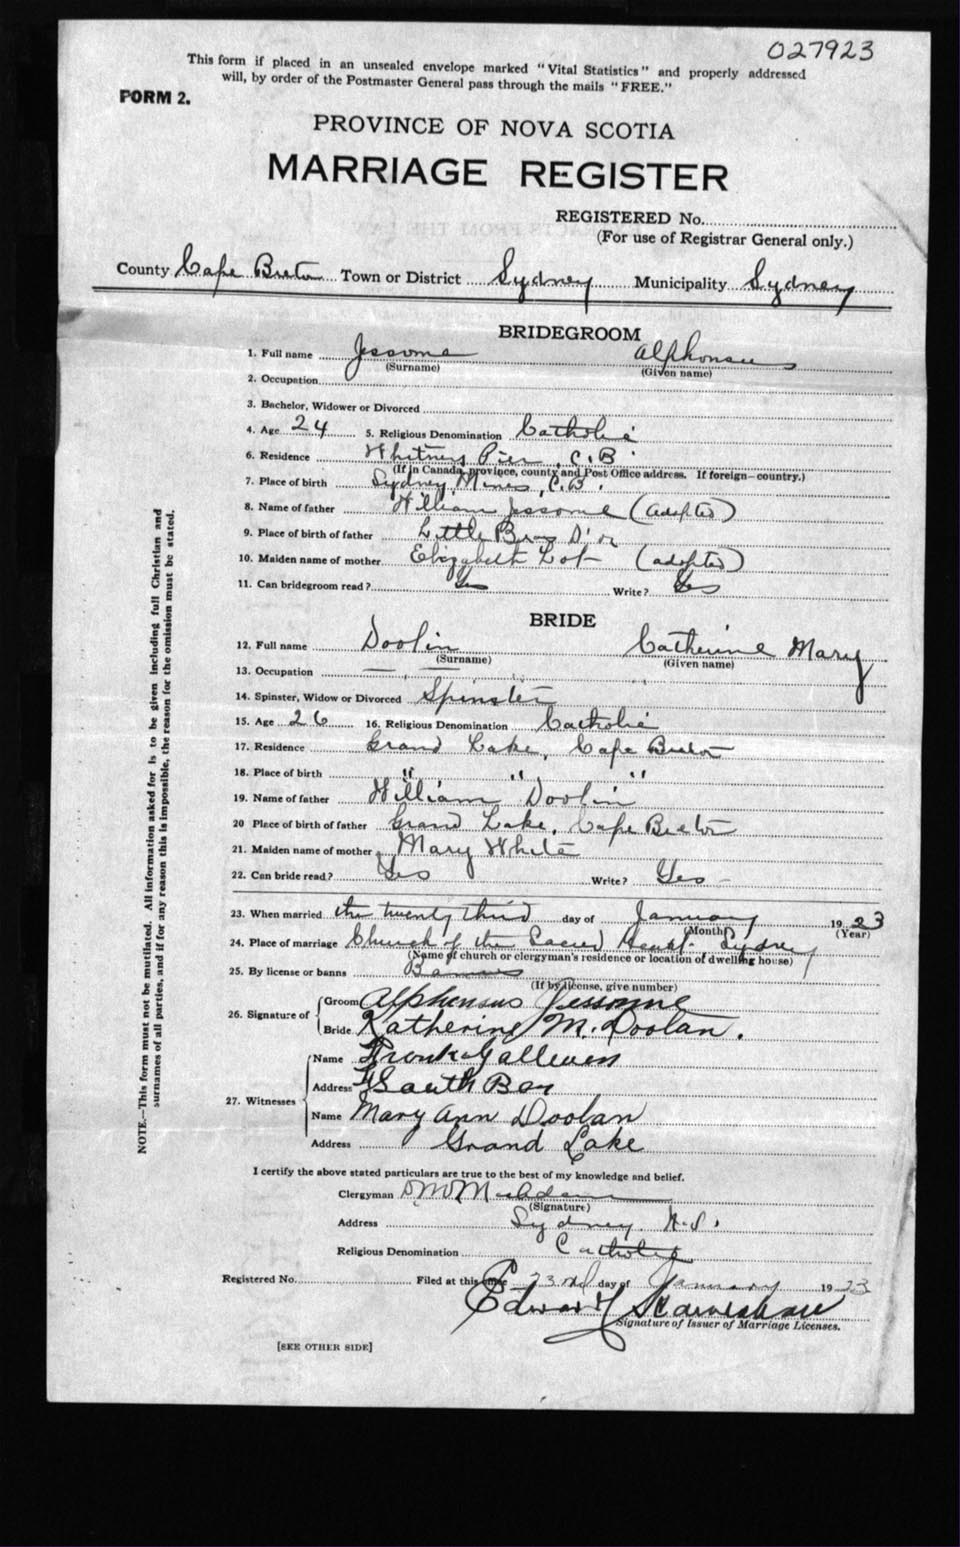 027923
This form if placed in an unsealed envelope marked "Vital Statistics" and properly addressed
will, by order of the Postmaster General pass through the mails "FREE."
FORM 2.
PROVINCE OF NOVA SCOTIA
MARRIAGE REGISTER
REGISTERED No.
(For use of Registrar General only.)
County Cape Breton Town or District Sydney Municipality Sydney
BRIDEGROOM
1. Full name Jessome Alphonsus
(Surname) (Given name)
2. Occupation
3. Bachelor, Widower or Divorced
4. Age 24 5. Religious Denomination Catholic
6. Residence Whitney Pier, C.B.
(If in Canada, province, county and Post Office address. If foreign—country.)
7. Place of birth Sydney Mines, C.B.
8. Name of father William Jessome (adopted)
9. Place of birth of father Little Bras D'or
10. Maiden name of mother Elizabeth (adopted)
11. Can bridegroom read? Yes Write? Yes
BRIDE
12. Full name Doolin Catherine Mary
(Surname) (Given name)
13. Occupation — —
14. Spinster, Widow or Divorced Spinster
15. Age 26 16. Religious Denomination Catholic
17. Residence Grand Lake, Cape Breton
18. Place of birth " " "
19. Name of father William Doolin
20 Place of birth of father Grand Lake, Cape Breton
21. Maiden name of mother Mary White
22. Can bride read? Yes Write? Yes –
23. When married the twenty third day of January 1923
(Month) (Year)
24. Place of marriage Church of the Sacred Heart. Sydney
(Name of church or clergyman's residence or location of dwelling house)
25. By license or banns Banns
(If by license, give number)
26. Signature of Groom Alphonsus Jessome
Bride Katherine M. Doolan.
27. Witnesses Name Frank
Address South Bar
Name Mary Ann Doolan
Address Grand Lake
I certify the above stated particulars are true to the best of my knowledge and belief.
Clergyman
(Signature)
Address Sydney N.S.
Religious Denomination Catholic
Registered No. Filed at this office 23rd day of January 1923
Edward
Signature of Issuer of Marriage Licenses.
[SEE OTHER SIDE]
NOTE.—This form must not be mutilated. All information asked for is to be given including full Christian and
surnames of all parties, and if for any reason this is impossible, the reason for the omission must be stated.